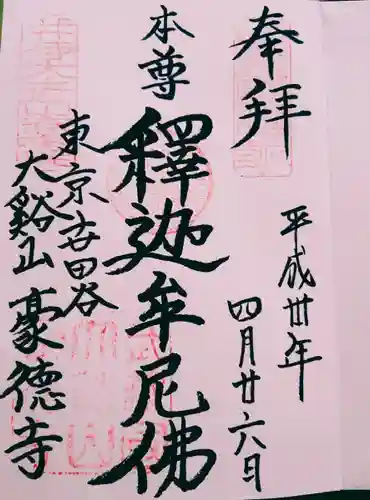 奉拝
平成卅年
四月廿六日
本尊
釋迦牟尼佛
東京世田谷
大谿山豪徳寺